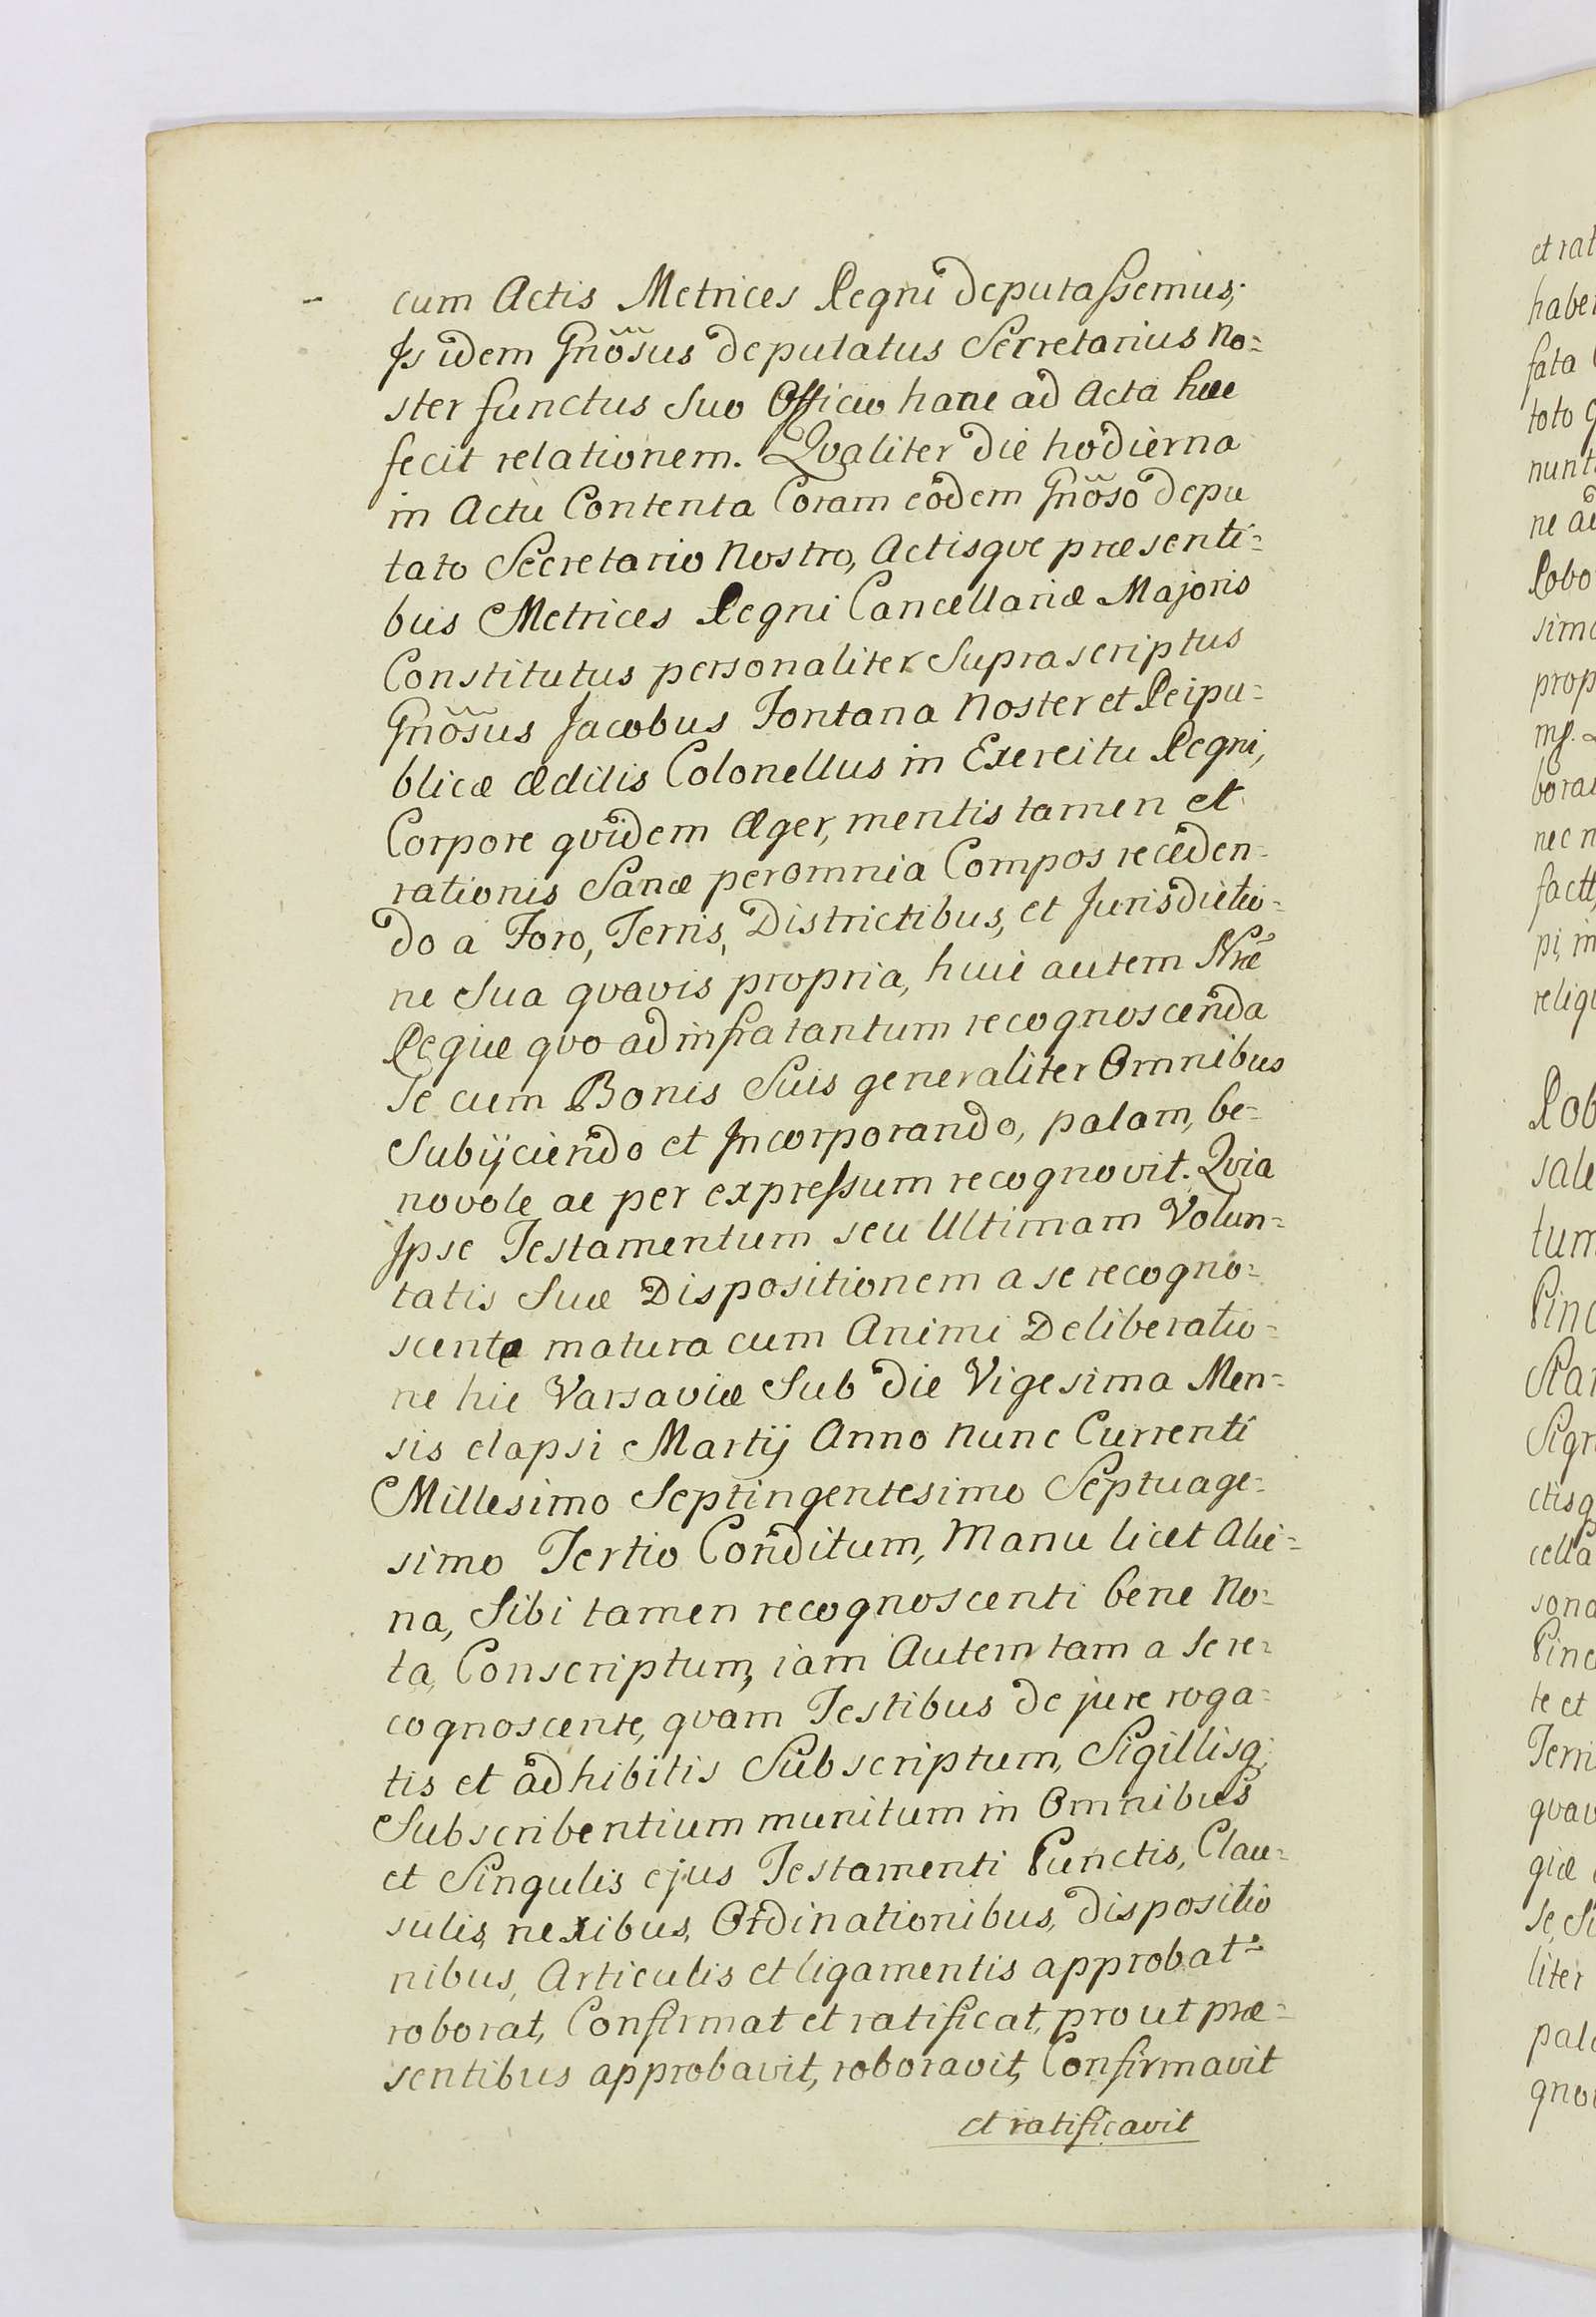 cum Actis Metrices Regni deputassemus;
Is idem Gnõsus deputatus Secretarius no=
ster functus suo Officio hanc ad Acta hæc
fecit relationem. Qvaliter die hodierna
in Actu Contenta Coram eodem Gnõso depu
tato Secretario Nostro, Actisqve præsenti=
bus Metrices Regni Cancellariæ Majoris
Constitutus personaliter Suprascriptus
Gnõsus Jacobus Fontana Noster et Reipu=
blicæ Ædilis Colonellus in Exercitu Regni,
Corpore qvidem Æger, mentis tamen et
rationis Sanæ per omnia Compos receden=
do a Foro, Terris, Districtibus, et Jurisdictio=
ne Sua qvavis propria, huic autem Nræ
Regiæ qvo ad infra tantum recognoscenda
Se cum Bonis Suis generaliter Omnibus
Subijciendo et Incorporando, palam, be=
nevole ac per expressum recognovit. Qvia
Ipse Testamentum seu Ultimam Volun=
tatis Suæ Dispositionem a se recogno=
scente matura cum Animi Deliberatio=
ne hic Varsaviæ Sub die Vigesima Men=
sis elapsi Martij Anno nunc Currenti
Millesimo Septingentesimo Septuage=
simo Tertio Conditum, Manu licet Alie=
na, Sibi tamen recognoscenti bene No=
ta, Conscriptum, iam Autem tam a se re=
cognoscente, qvam Testibus de jure roga=
tis et adhibitis Subscriptum, Sigillisq;
Subscribentium munitum in Omnibus
et Singulis ejus Testamenti Punctis, Clau=
sulis, nexibus, Ordinationibus, dispositio
nibus, Articulis et ligamentis approbat=
roborat, Confirmat et ratificat, prout præ=
sentibus approbavit, roboravit, Confirmavit
et ratificavit
et rat
haber
fata
toto
nunt
ne
Robo
simo
prop
mp.
borav
nec n
factt,
pi, in
reliqv
Rob
sale
tum
Pinc
Star
Sign
ctisq
cella
sona
Pinc
te et
Terri
qvav
giæ
Se, Si
liter
pala
gnov